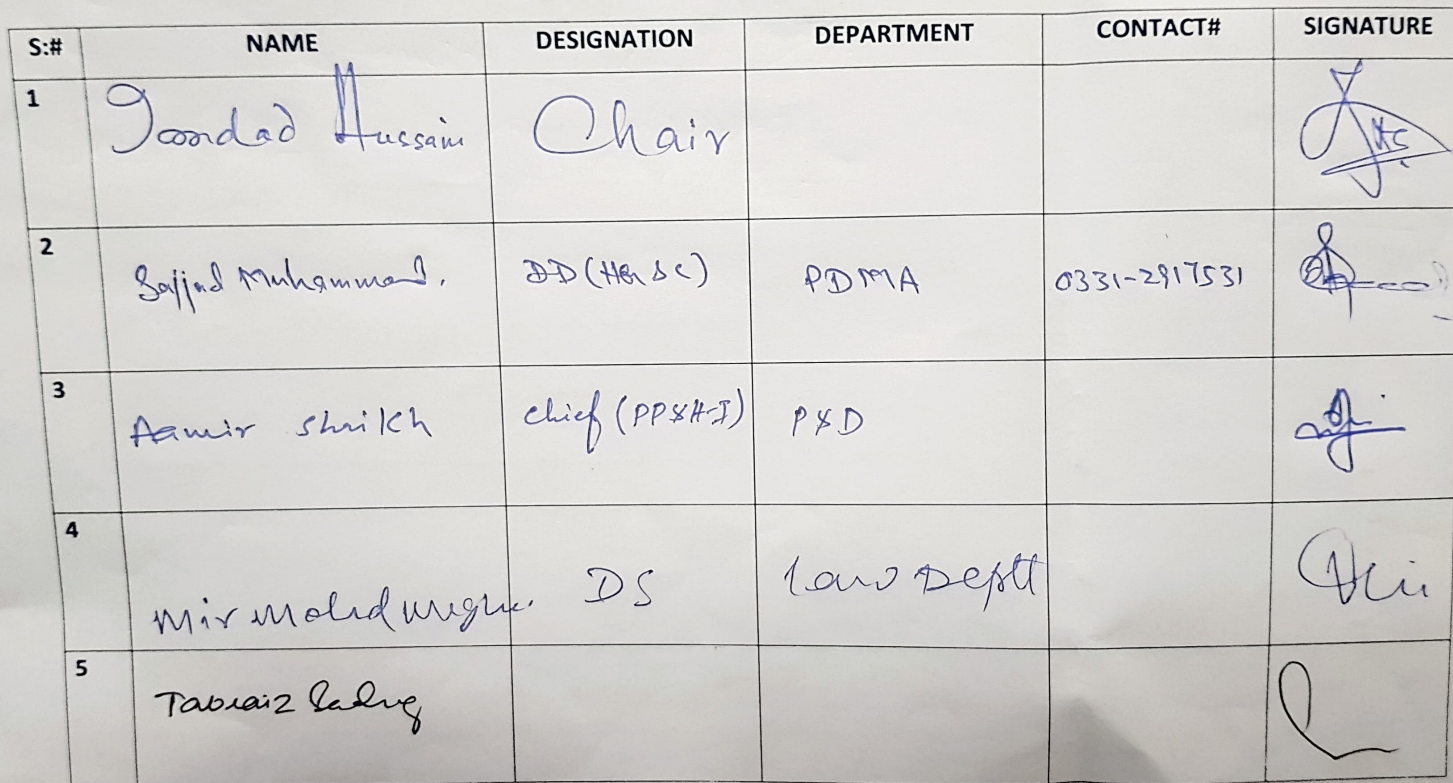 S:# NAME DESIGNATION DEPARTMENT CONTACT# SIGNATURE
1 Hussain Chair
2 Sajjad Muhammad. DD ( PDMA 0331-2917531
3 Aamir Shaikh Chief (PP&H-I) P&D
4 Mir Mohd DS Law Deptt
5 Tabraiz